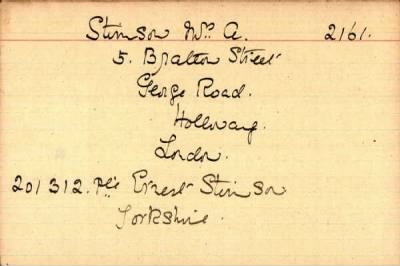 Stimson Mrs A. 2161.
5. Bralton Street
George Road.
Holloway.
London.
201312. Pte Ernest Stimson
Yorkshire.